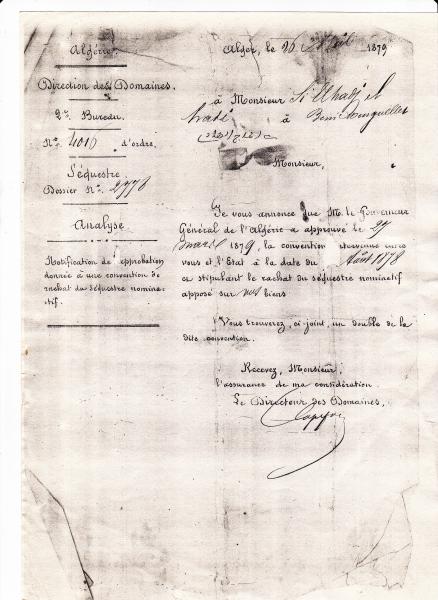 Algérie.
Direction des Domaines.
2e. Bureau.
No. 4010 d'ordre.
Séquestre
Dossier No. 2778
Analyse
Notification de l'approbation
donnée à une convention de
rachat du séquestre nomina-
tif.
Alger, le 26 Avril 1879
à Monsieur Si
à Beni
Monsieur,
Je vous annonce que M. le Gouverneur
Général de l'Algérie a approuvé le 27
mars 1879, la convention intervenue entre
vous et l'État à la date du
ce stipulant le rachat du séquestre nominatif
apposé sur vos biens
Vous trouverez, ci-joint, un double de la
dite convention.
Recevez, Monsieur,
l'assurance de ma considération.
Le Directeur des Domaines,